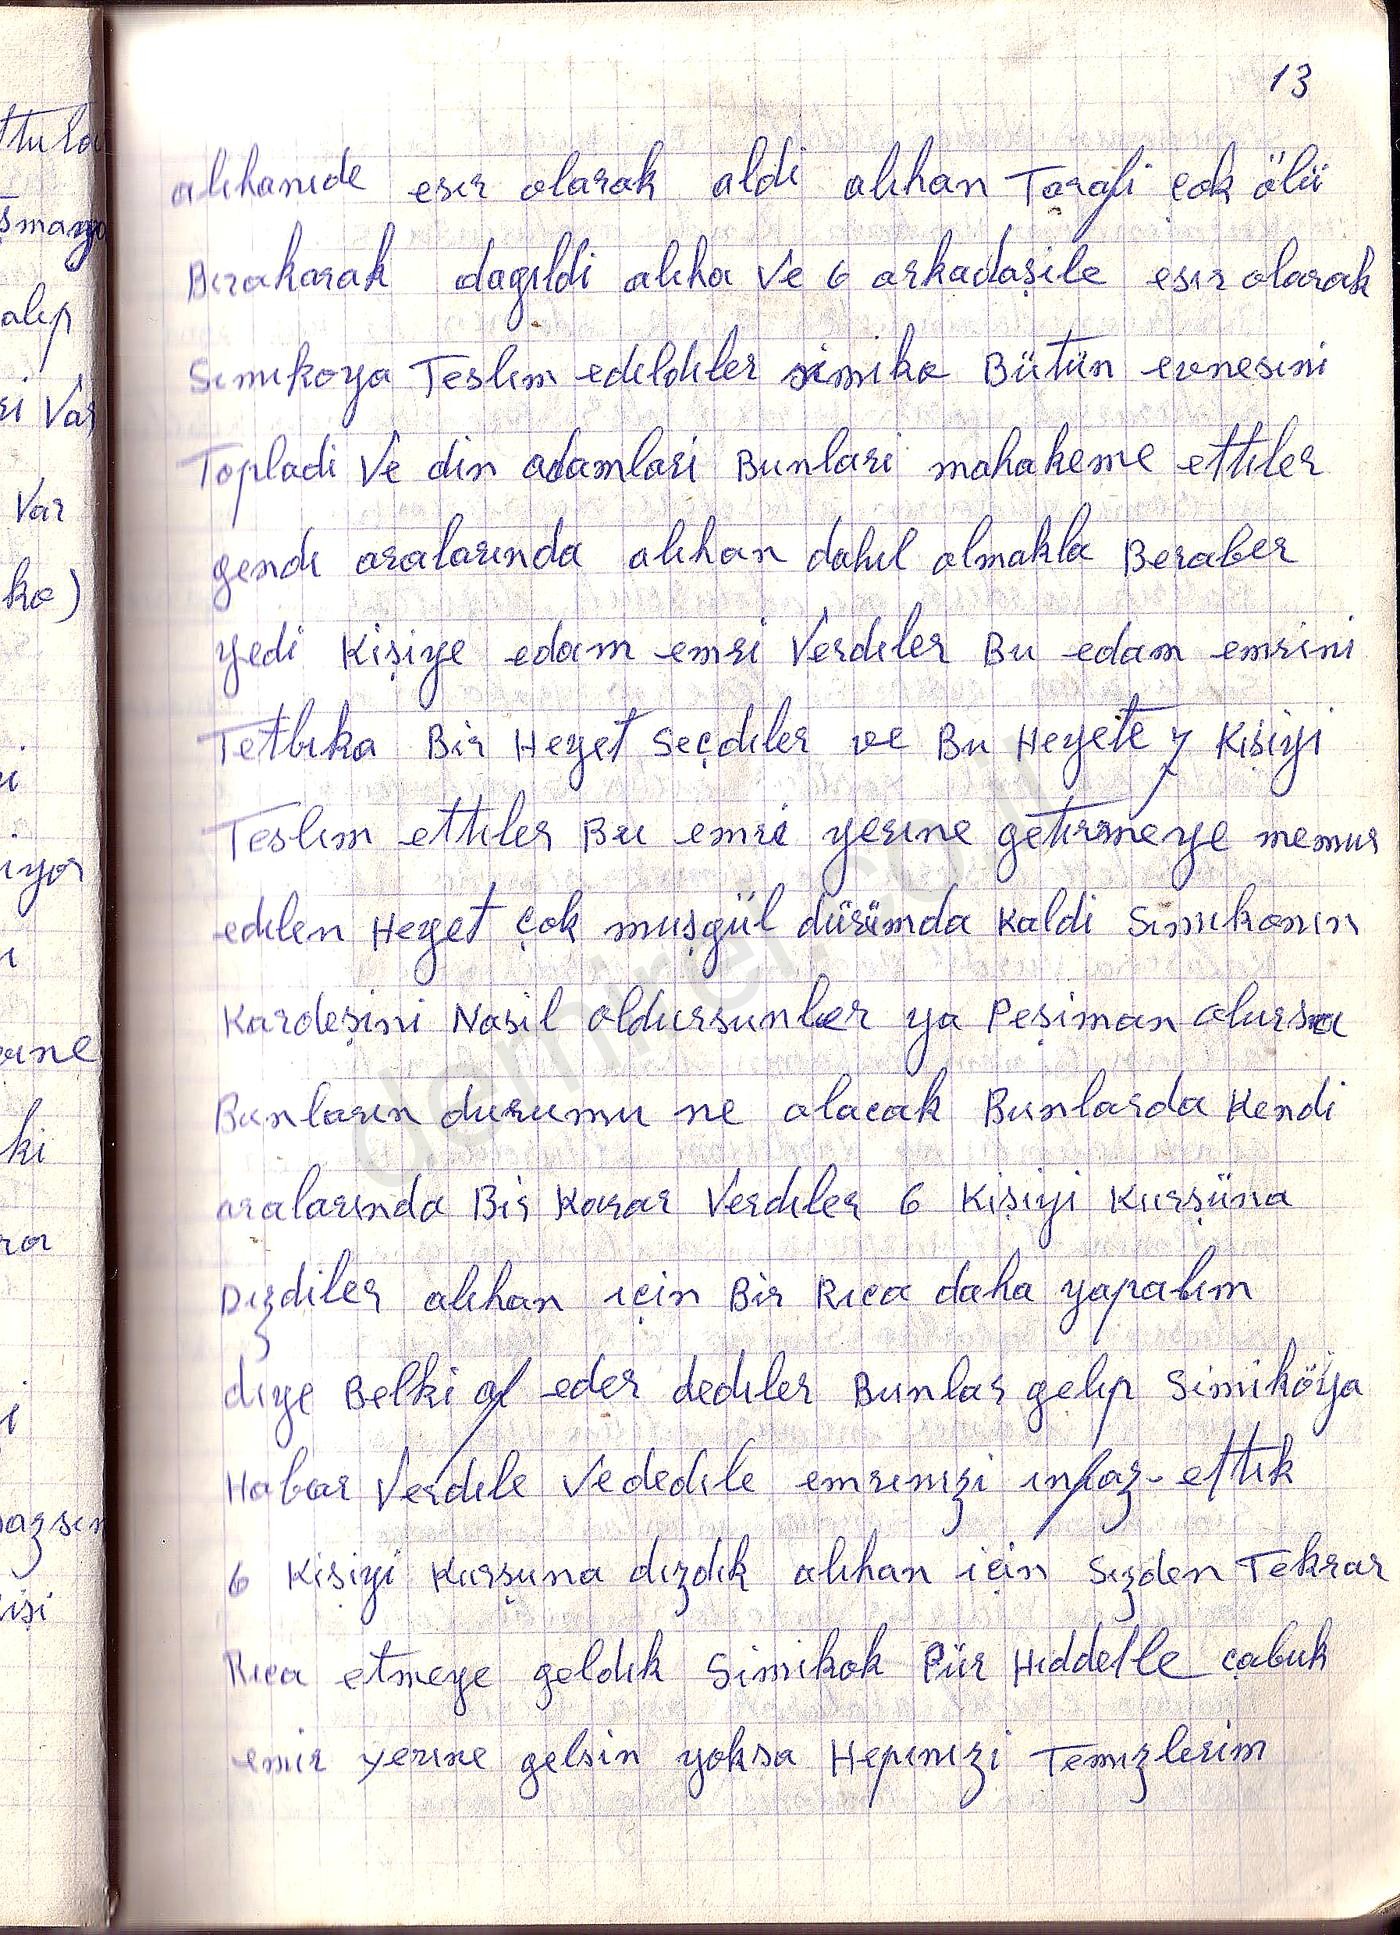 13
alıhanıde esır olarak aldi alıhan Tarafi çok ölü
Bırakarak dagıldi alıha Ve 6 arkadaşile esır olarak
Sımıkoya Teslım edıldıler simiko Bütün evnesıni
Topladi Ve din adamlari Bunlari mahakeme ettıler
gendı aralarında alıhan dahıl olmakla Beraber
yedi Kişiye edam emri Verdıler Bu edam emrini
Tetbıka Bir Heyet Seçdıler ve Bu Heyete 7 Kişiyi
Teslım ettıler Bu emri yerıne getırmeye memur
edılen Heyet çok muşgül dürümda Kaldi Sımıkonın
Kardeşini Nasil oldursunler ya Peşiman olursa
Bunların durumu ne olacak Bunlarda Kendi
aralarında Bir Karar Verdıler 6 Kişiyi Kurşüna
Dızdiler alıhan ıçin Bir Rıca daha yapalım
dıye Belki af eder dedıler Bunlar gelıp Simiköya
Habar Verdıle Ve dedıle emrınızi ınfaz ettık
6 Kişiyi Kurşuna dızdık alıhan için Sızden Tekrar
Rıca etmeye geldık Simikok Pür Hıddetle çabuk
emir yerıne gelsin yoksa Hepınızi Temızlerim
ttula
şmaya
alıp
ri Var
Var
ko)
ıyor
ki
demirel.co.il